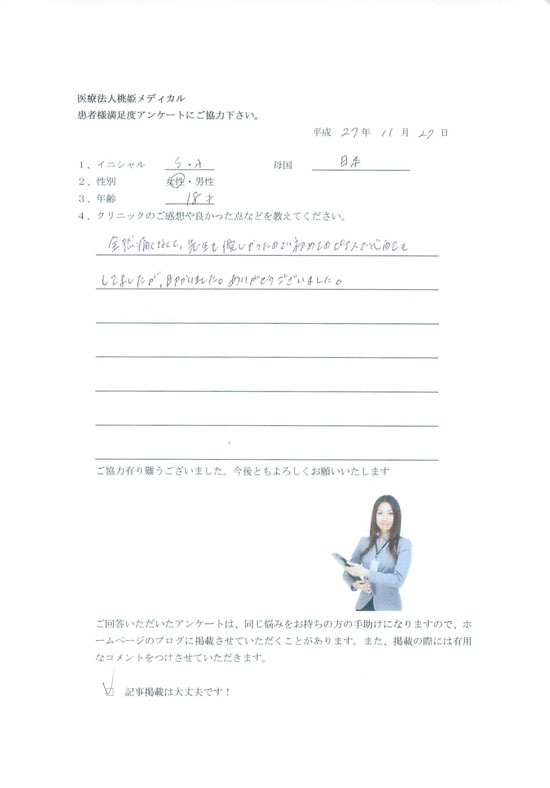 医療法人桃姫メディカル
患者様満足度アンケートにご協力下さい。
平成 27年 11月 27日
1、イニシャル S・A 母国 日本
2、性別 女性・男性
3、年齢 18才
4、クリニックのご感想や良かった点などを教えてください。
全然痛くなく、先生も優しかったので初めてのピアスで心配も
してましたが、助かりました。ありがとうございました。
ご協力有り難うございました。今後ともよろしくお願いいたします
ご回答いただいたアンケートは、同じ悩みをお持ちの方の手助けになりますので、ホ
ームページのブログに掲載させていただくことがあります。また、掲載の際には有用
なコメントをつけさせていただきます。
記事掲載は大丈夫です！